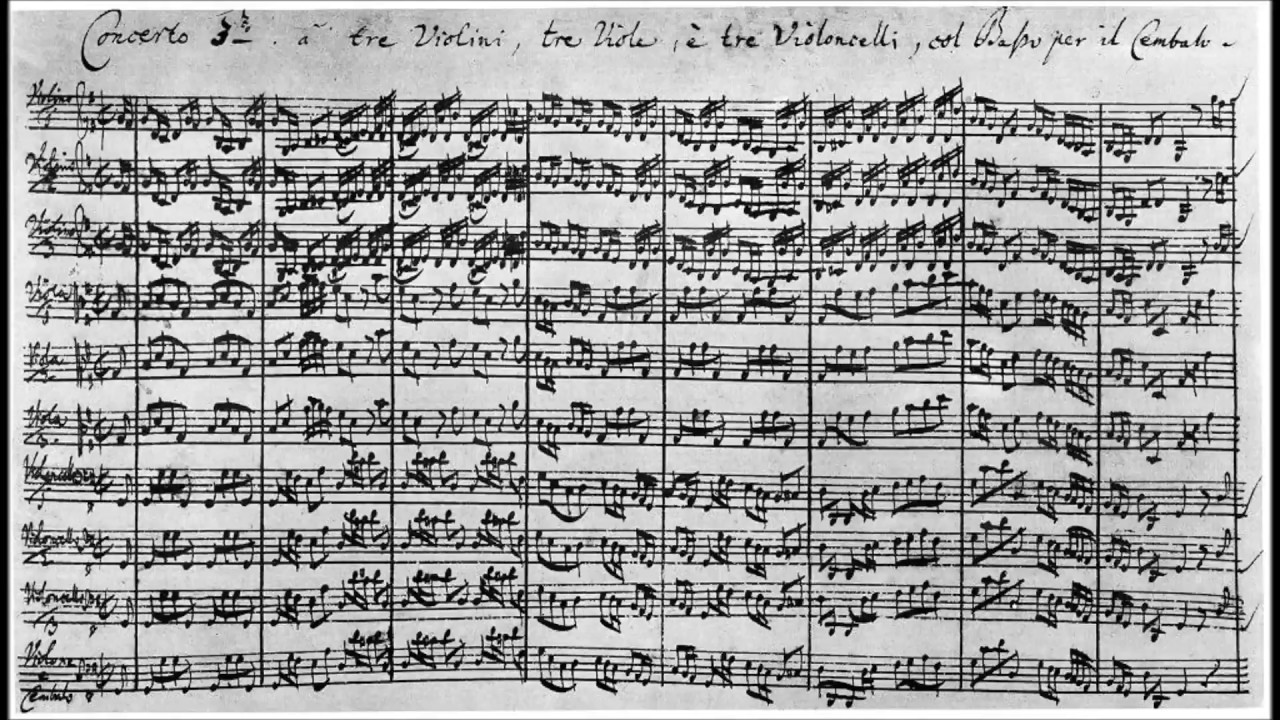 Concerto 3zo. à tre Violini, tre Viole, è tre Violoncelli, col Baßo per il Cembalo
Violino
1
Violino
2
Violino
3
Viola
1
Viola
2
Viola
3
Violoncello
1
Violoncello
2
Violoncello
3
Violone
e
Cembalo